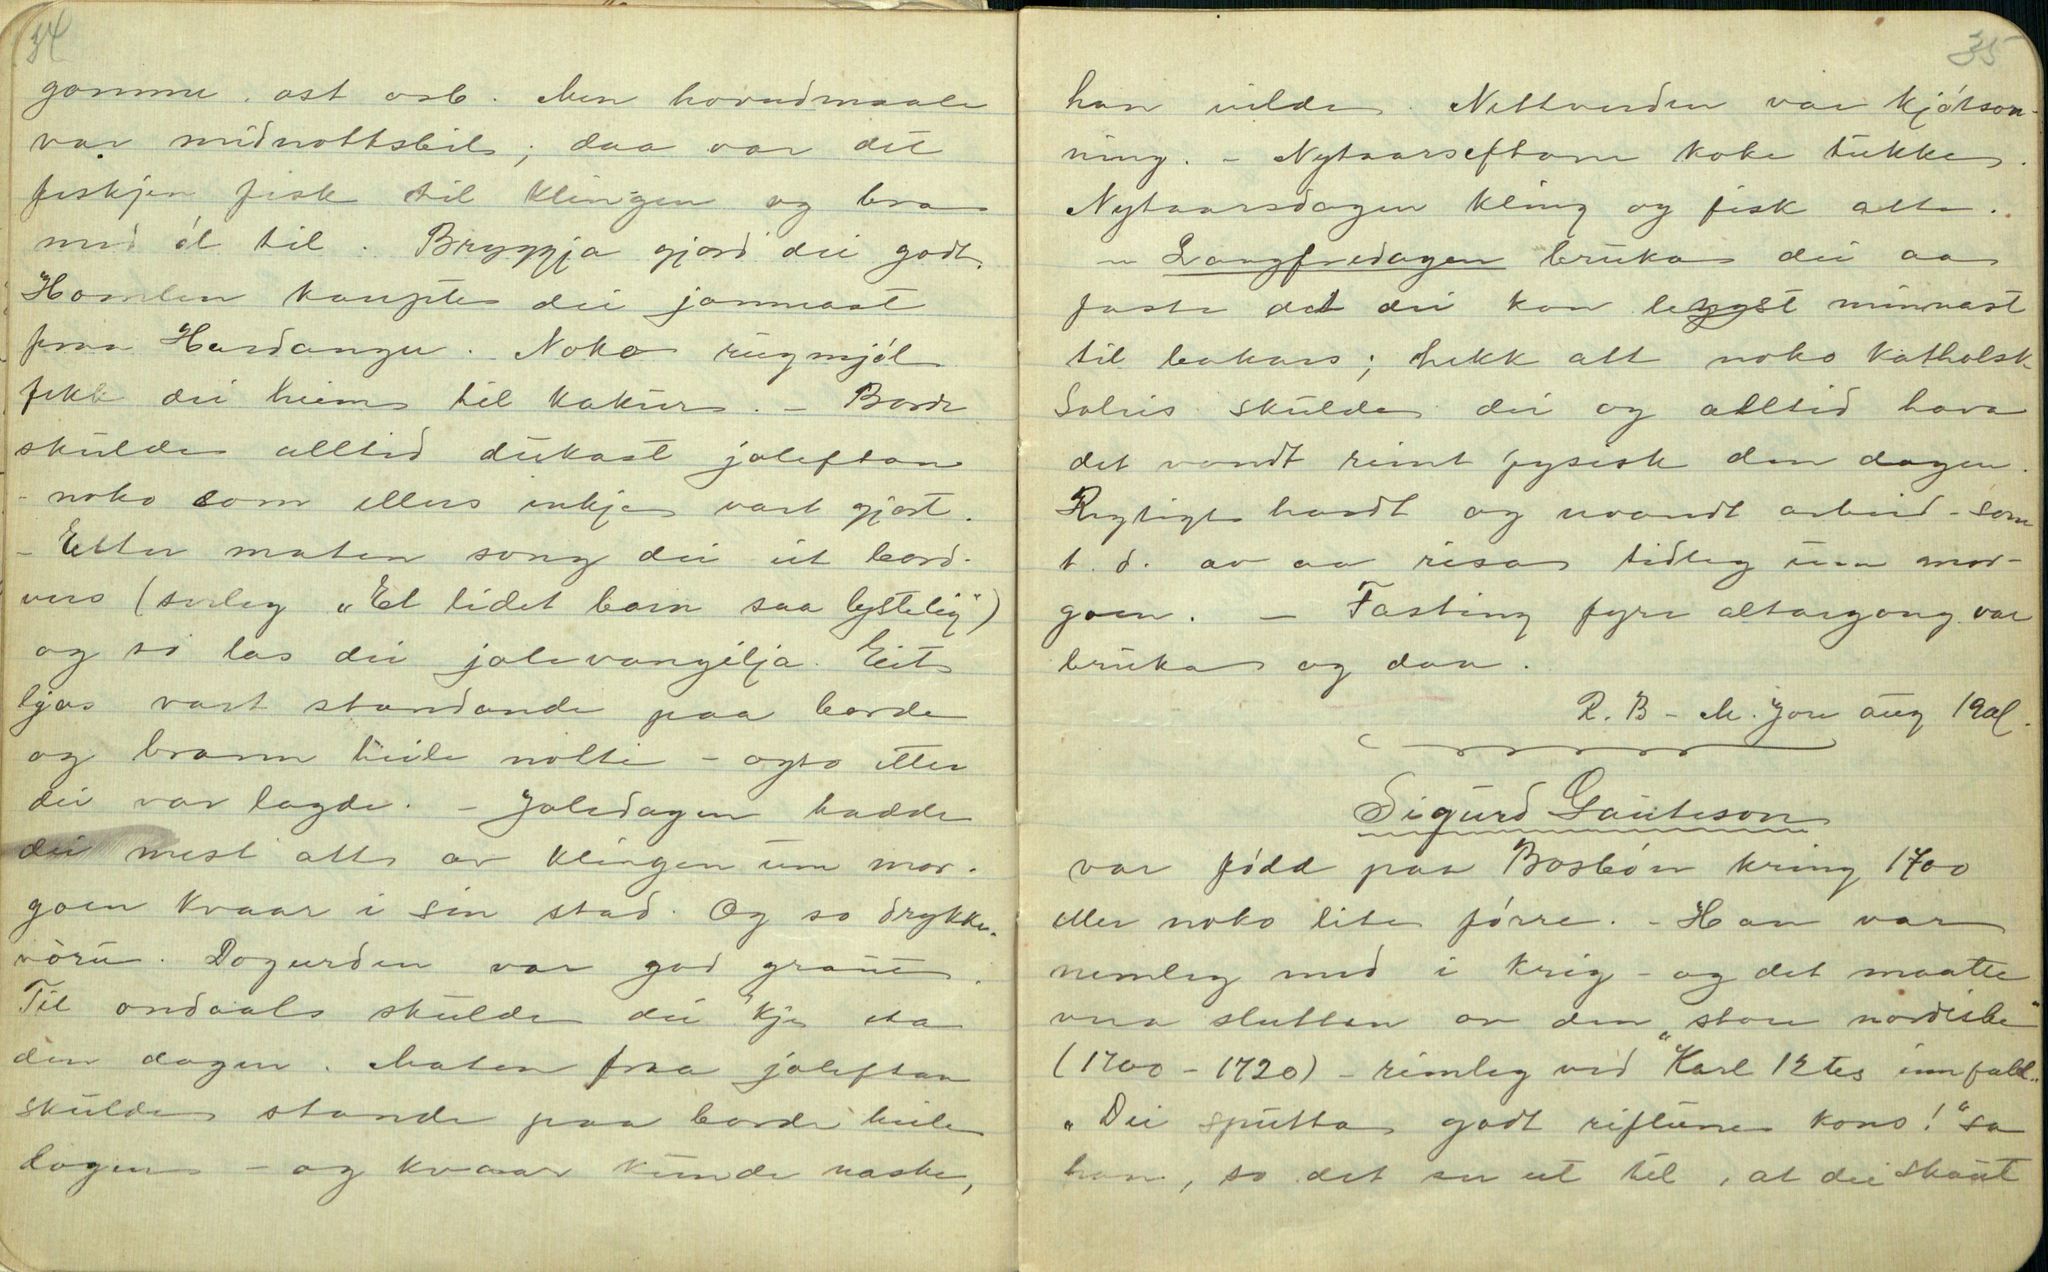 34
gamme . ost osb. Men hovudmaale
var midnottsbil; daa var dei
fiskjen fisk til klingen og bra
med øl til. Bryggja gjord dei godt.
Homlen kaupte dei jamnast
fraa Hardanger. Noko rugmjøl
fekk dei heim til kakur. - Borde
skulde alltid dukast joleftan
- noko som ellers inkje vart gjort.
- Etter maten song dei ut bord-
vers (serleg „Et lidet barn saa lystelig")
og so las dei jolevangelja. Eit
ljos vart standande paa borde
og brann heile notti - ogso etter
dei var lagde. - Joledagen hadde
dei mest ått av klingen um mor-
goen kvaar i sin stad. Og so drykke-
vøru. Dogurden var god graut.
Til ondaals skulde dei kje eta
den dagen. Maten fraa joleftan
skulde standa paa borde heile
dagen - og kvaar kunde naske,
35
han vilde. Nettverden var kjøtson-
ning. - Nytaarseftane koke tukke.
Nytaarsdagen kling og fisk atte.
- Langfredagen bruka dei aa
faste det dei kan leggst minnast
til bakars; hekk att noko katholsk.
Soleis skulde dei og alltid hava
det vondt reint fysisk den dagen.
Rigtigt hardt og vondt arbeid - som
t. d. av aa risa tidleg um mor-
goen. - Fasting fyre altargong var
bruka og daa.
R. B - M. Jon aug 1901.
Sigurd Gauteson
var fødd paa Bosbøn kring 1700
eller noko lite førre. - Han var
nemleg med i krig - og det maatte
vera slutten av den „store nordiske"
(1700 - 1720) - rimleg ved Karl 12tes innfall.
„Dei sputta godt riflune kons!" sa
han, so det ser ut til, at dei skaut